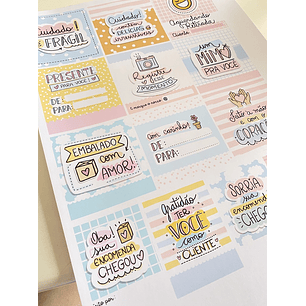 Cuidado!
É FRÁGIL
Cuidado!
CONTÉM
DELÍCIAS
irresistíveis
Aguardando
Retirada
Cliente
PRESENTE
PARA VOCÊ!
DE:
PARA:
Registre
seu
MOMENTO
um
MIMO
PRA VOCÊ
EMBALADO
com
AMOR!
com carinho!
DE:
PARA:
feito à mão
com
CORAÇÃO
Oba
sua
ENCOMENDA
CHEGOU
Gratidão
TER
VOCÊ
como
CLIENTE
SORRIA
sua
encomenda
CHEGOU